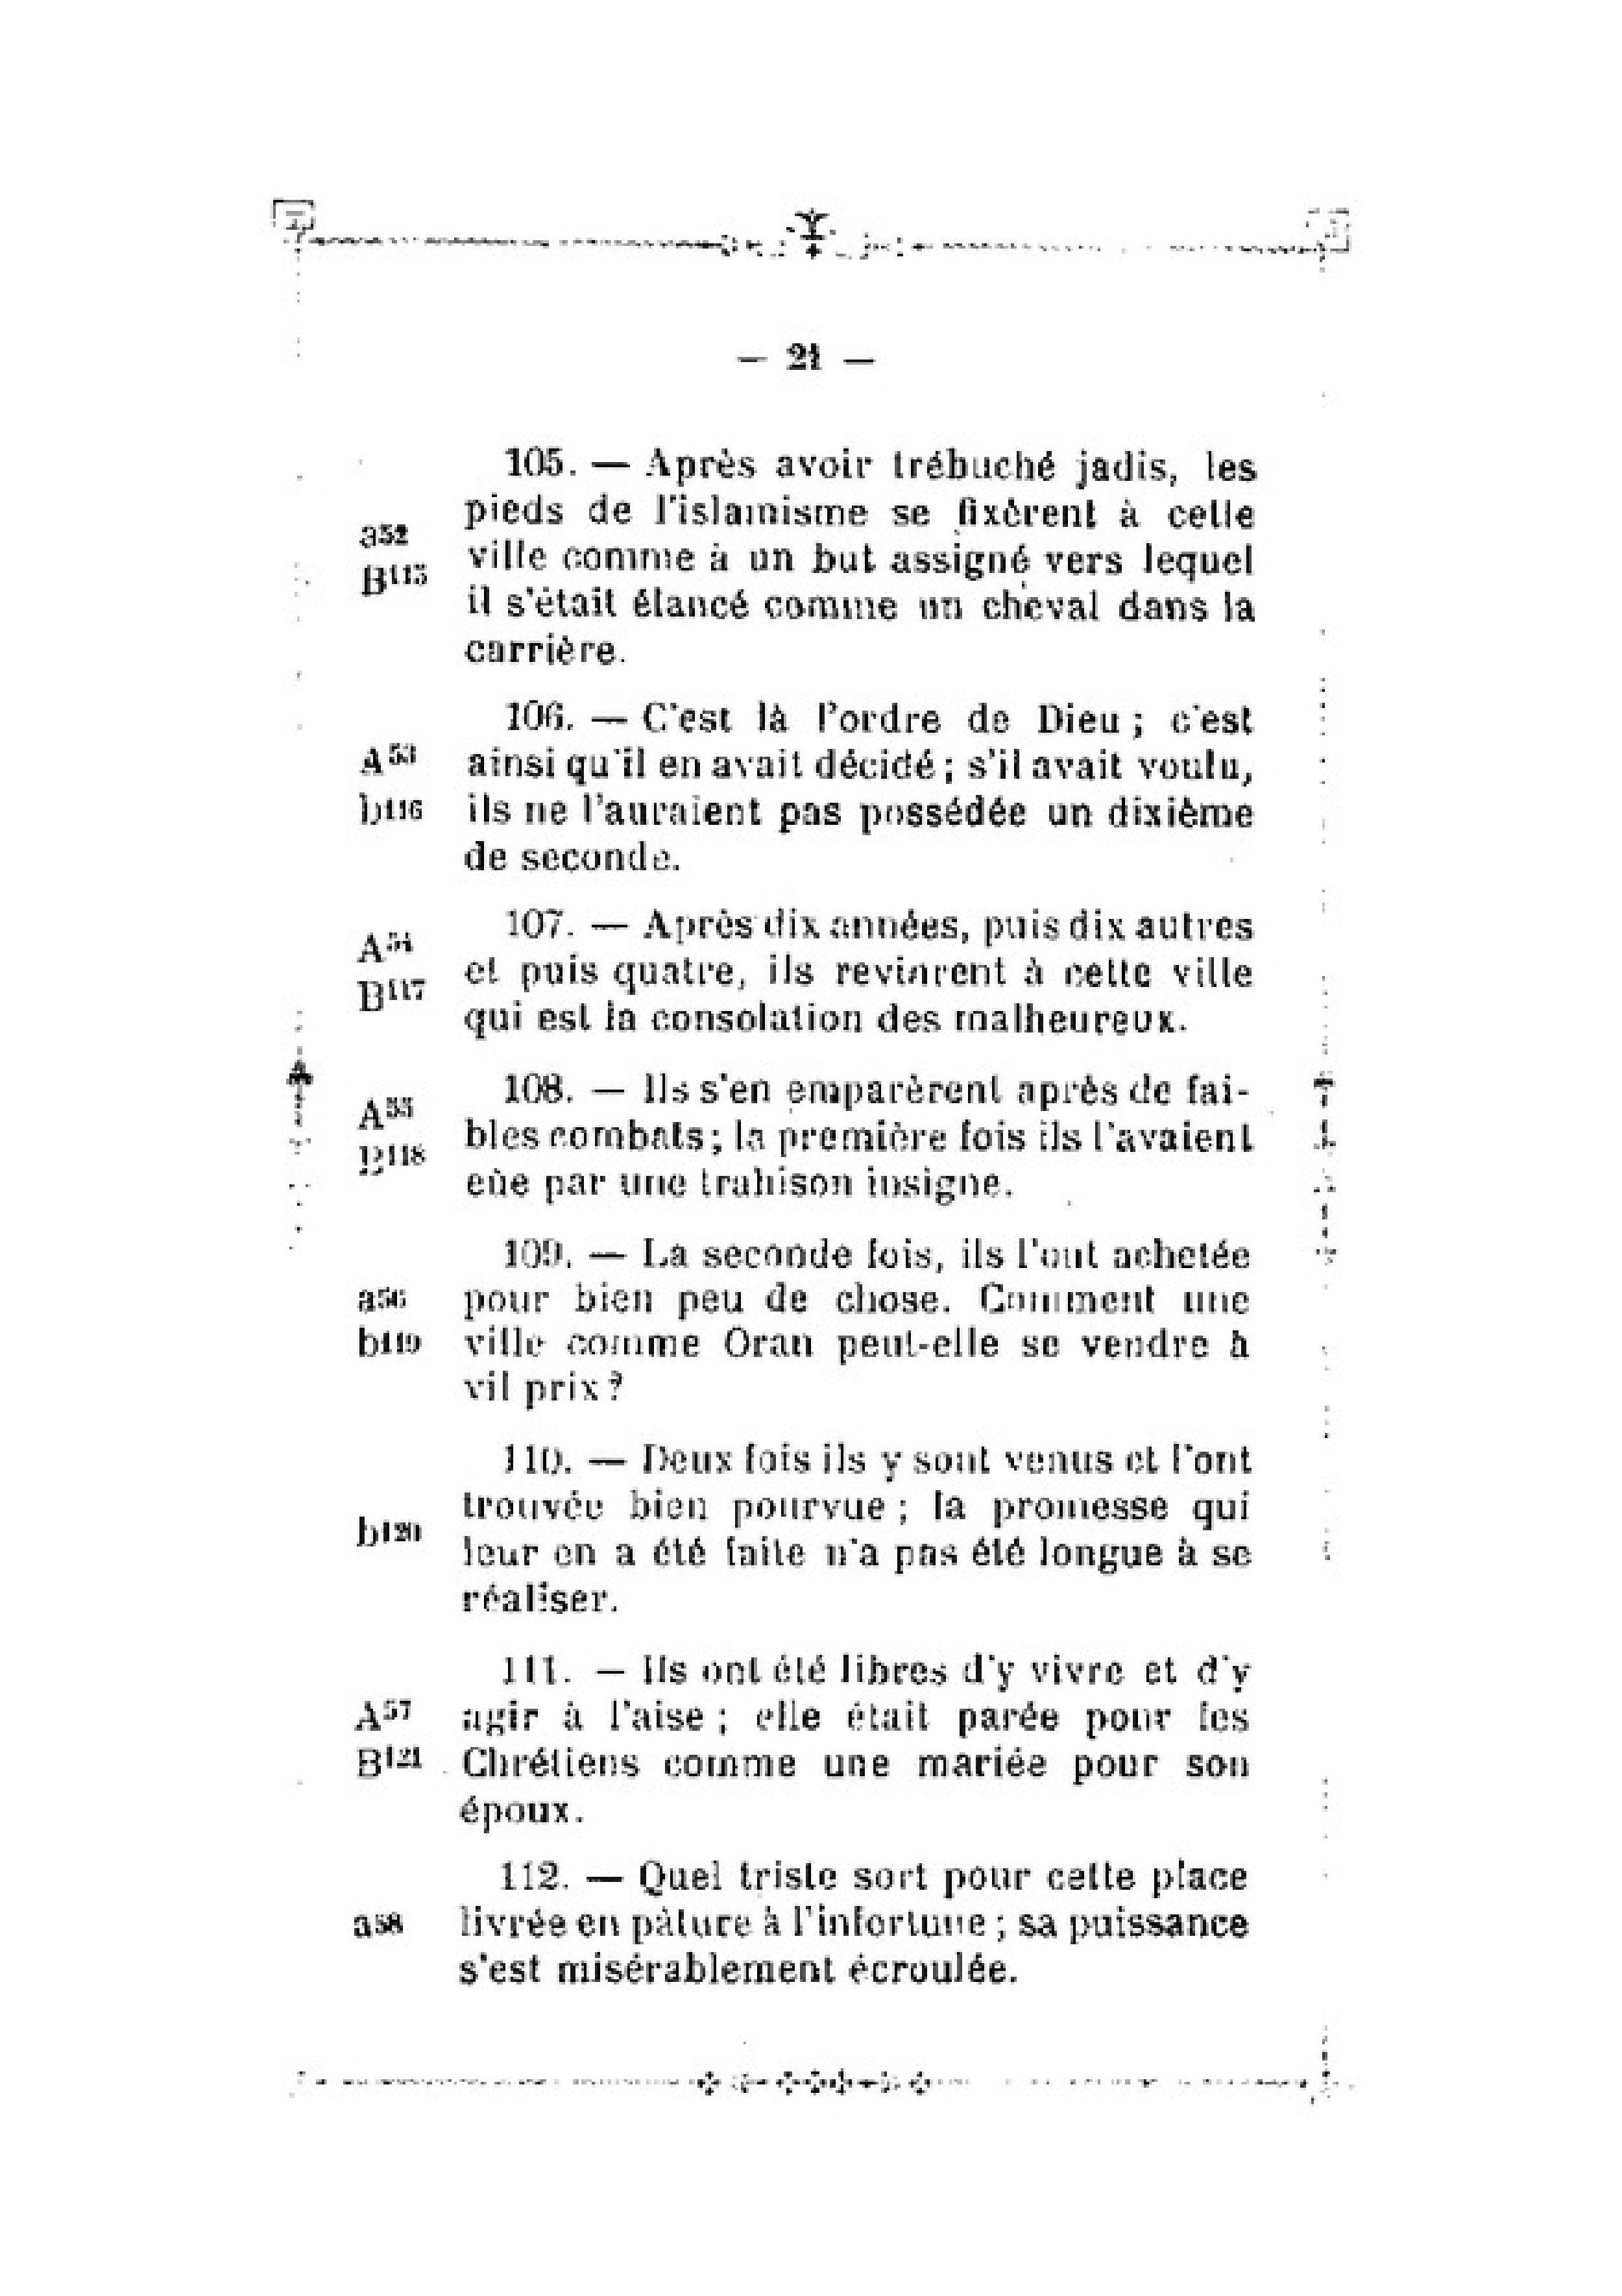 — 21 —
105. — Après avoir trébuché jadis, les
pieds de l'islamisme se fixèrent à cette
a52
ville comme à un but assigné vers lequel
B115
il s'était élancé comme un cheval dans la
carrière.
106. — C'est là l'ordre de Dieu ; c'est
A53
ainsi qu'il en avait décidé ; s'il avait voulu,
b116
ils ne l'auraient pas possédée un dixième
de seconde.
107. — Après dix années, puis dix autres
A54
et puis quatre, ils revinrent à cette ville
B117
qui est la consolation des malheureux.
108. — Ils s'en emparèrent après de fai-
A55
bles combats ; la première fois ils l'avaient
B118
eùe par une trahison insigne.
109. — La seconde fois, ils l'ont achetée
a56
pour bien peu de chose. Comment une
b119
ville comme Oran peut-elle se vendre à
vil prix ?
110. — Deux fois ils y sont venus et l'ont
trouvée bien pourvue ; la promesse qui
b120
leur en a été faite n'a pas été longue à se
réaliser.
111. — Ils ont été libres d'y vivre et d'y
A57
agir à l'aise ; elle était parée pour les
B121
Chrétiens comme une mariée pour son
époux.
112. — Quel triste sort pour cette place
a58
livrée en pàture à l'infortune ; sa puissance
s'est misérablement écroulée.